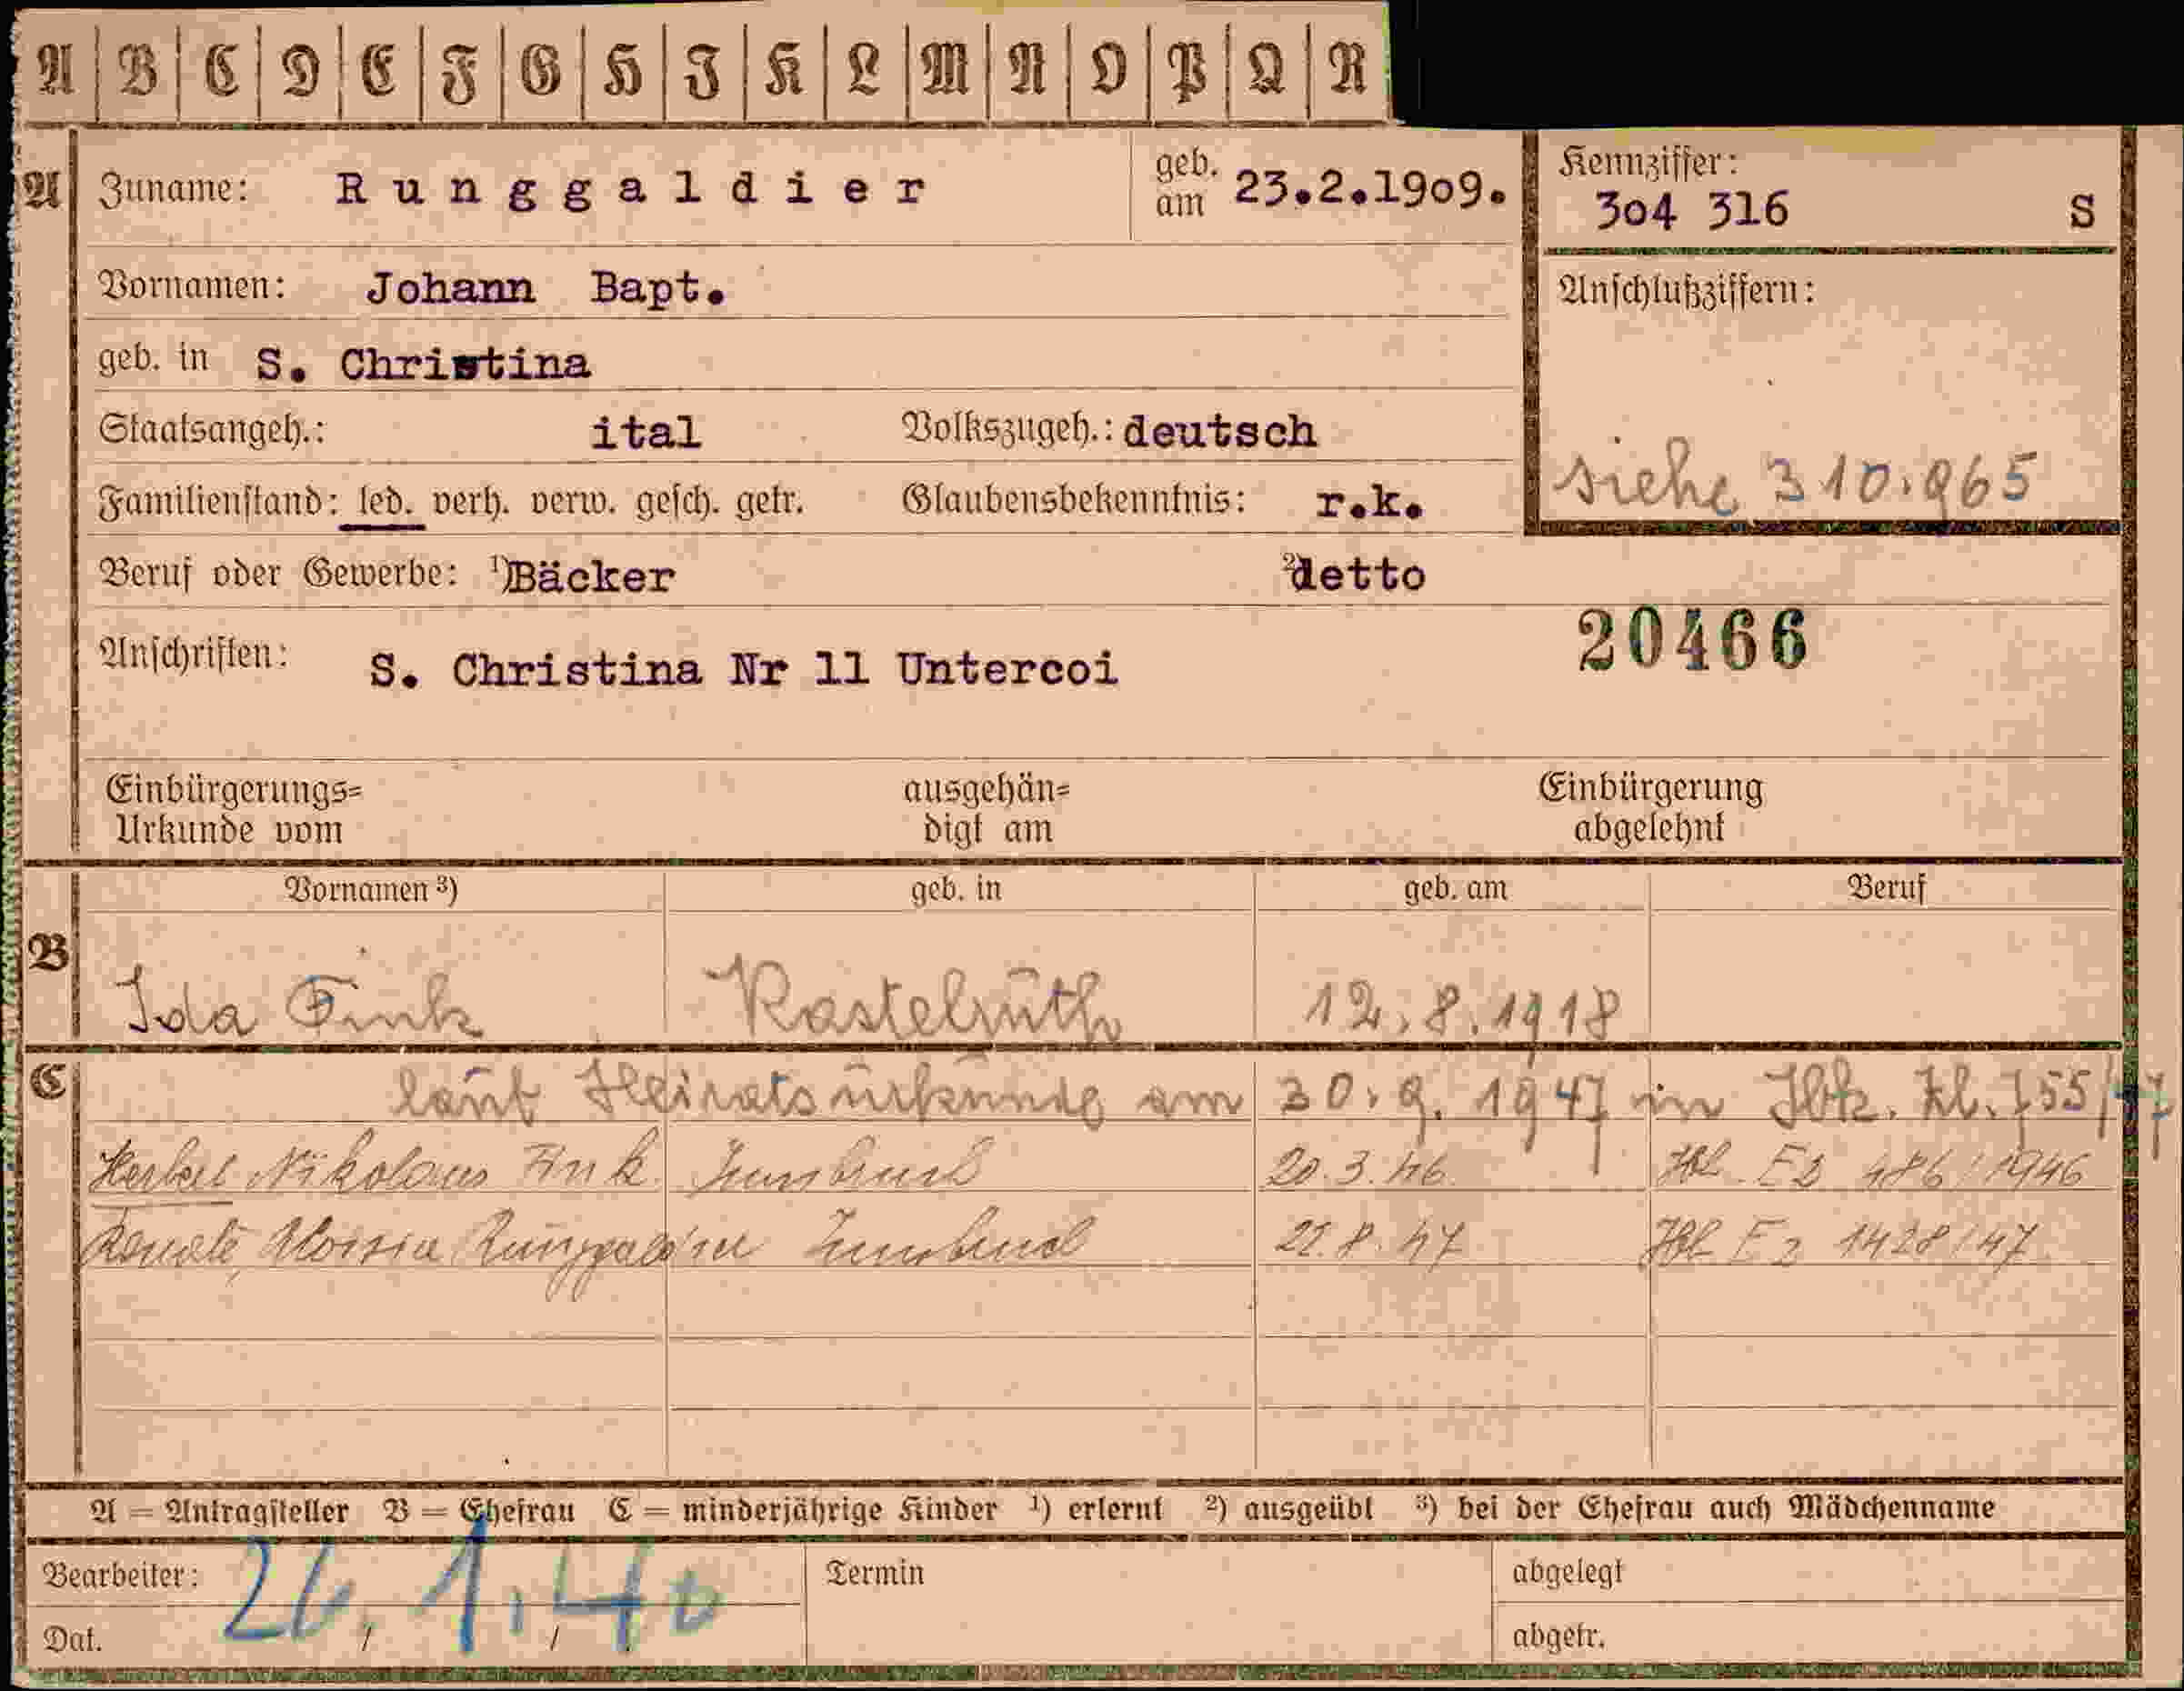 A B C D E F G H I K L M N O P Q R
A Zuname: Runggaldier geb. am 23.2.1909. Kennziffer: 304 316 S
Vornamen: Johann Bapt. Anschlußziffern:
geb. in S. Christina
Staatsangeh.: ital Volkszugeh.: deutsch
siehe 310.965
Familienstand: led. verh. verw. gesch. getr. Glaubensbekenntnis: r.k.
Beruf oder Gewerbe: ¹)Bäcker ²detto
20466
Anschriften: S. Christina Nr 11 Untercoi
Einbürgerungs= ausgehän= Einbürgerung
Urkunde vom digt am abgelehnt
Vornamen ³) geb. in geb. am Beruf
B
Ida Fink Kastelruth 12.8.1918
C laut Heiratsurkunde am 30.9.1947 in Ibk. Zl. 755/47
Nikolaus Fink Innsbruck 20.3.46 486/1946
Renate, Aloisia Runggaldier Innsbruck 1428/47
A = Antragsteller B = Ehefrau C = minderjährige Kinder ¹) erlernt ²) ausgeübt ³) bei der Ehefrau auch Mädchenname
Bearbeiter: 26.1.40 Termin abgelegt
Dat. / / abgetr.